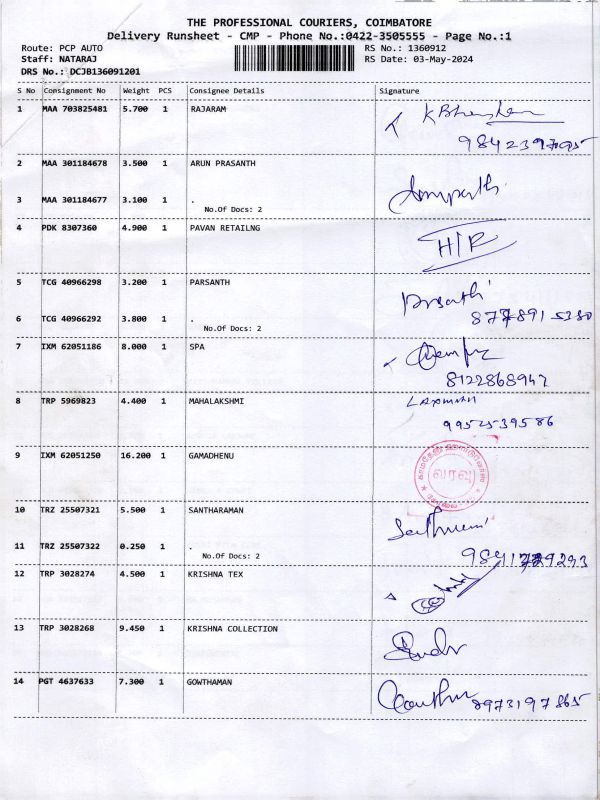 THE PROFESSIONAL COURIERS, COIMBATORE
Delivery Runsheet - CMP - Phone No.:0422-3505555 - Page No.:1
Route: PCP AUTO
RS No.: 1360912
Staff: NATARAJ
RS Date: 03-May-2024
DRS No.: DCJB136091201
S No Consignment No Weight PCS Consignee Details Signature
1 MAA 703825481 5.700 1 RAJARAM
2 MAA 301184678 3.500 1 ARUN PRASANTH
3 MAA 301184677 3.100 1 .
No.Of Docs: 2
4 PDK 8307360 4.900 1 PAVAN RETAILNG
H/R
5 TCG 40966298 3.200 1 PARSANTH
6 TCG 40966292 3.800 1 .
No.Of Docs: 2
7 IXM 62051186 8.000 1 SPA
8122868947
8 TRP 5969823 4.400 1 MAHALAKSHMI
Laxman
9952539586
9 IXM 62051250 16.200 1 GAMADHENU
வரவு
10 TRZ 25507321 5.500 1 SANTHARAMAN
11 TRZ 25507322 0.250 1 .
No.Of Docs: 2
12 TRP 3028274 4.500 1 KRISHNA TEX
13 TRP 3028268 9.450 1 KRISHNA COLLECTION
14 PGT 4637633 7.300 1 GOWTHAMAN
8973197865